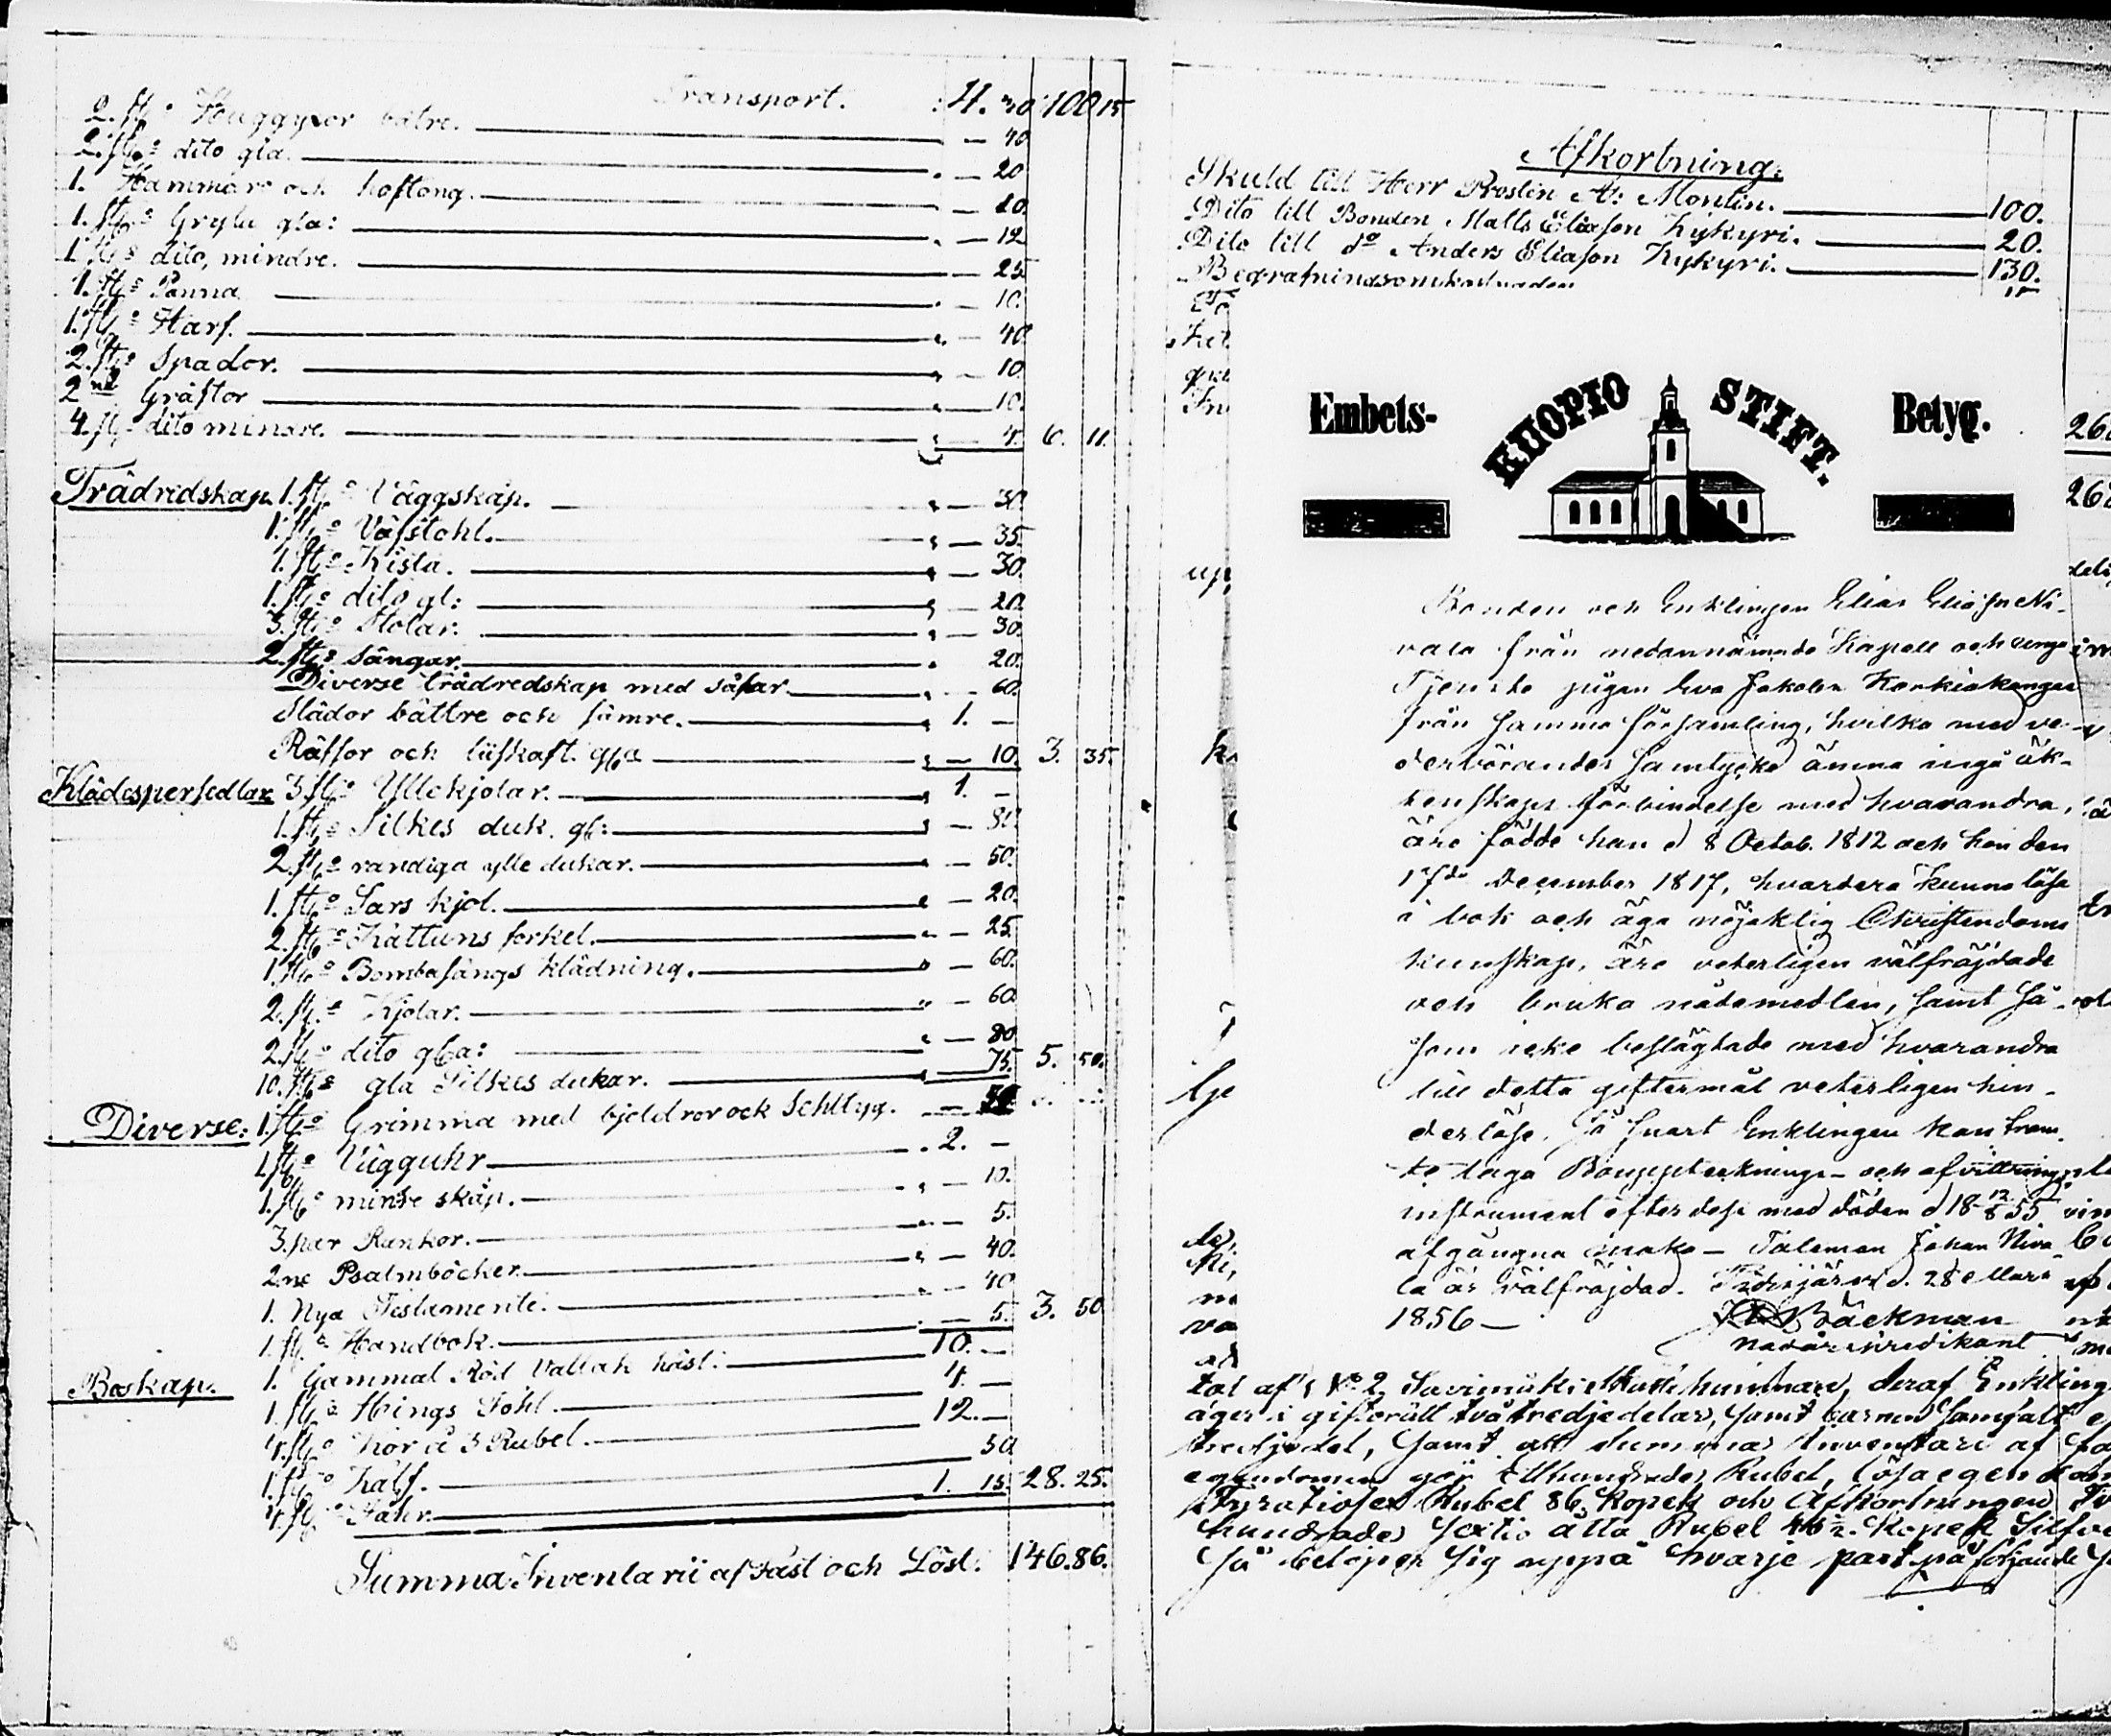 Transport. 4. 30 100 15
2. st:e Huggyxor bätre. — 40
2. st:e dito gla. — 20
1. Hammare och hoftong. — 20.
1. st:e Gryta gla: — 12
1 st:e dito, mindre. — 25
1. st:e Panna — 10.
1. st:e Harf. — 40
2. st:e Spador. — 10
2ne Gräftor — 10.
4. st:e dito mindre. — 4. 6. 11.
Trädredskap. 1. st:e Väggskåp. — 30.
1. st:e Väfstohl. — 35.
1. st:e Kista. — 30.
1. st:e dito gl: — 20
3. st:e Stolar. — 30.
2. st:e Sängar. — 20.
Diverse trädredskap med såpar — 60.
Slädor bättre och sämre. 1. —
Räffor och liifkaft. gla — 10. 3. 35.
Klädespersedlar. 3. st:e Yllekjolar. 1. —
1. st:e Silkes duk. gl: — 80.
2. st:e randiga ylle dukar. — 50.
1. st:e Sars kjol. — 20.
2. st:e Kattuns forkel. — 25
1. st:e Bombasångs klädning. — 60.
2. st:e Kjolar. — 60
2. st:e dito gla: — 80
10. st:e gla Silkes dukar. 75. 5. 50.
Diverse: 1. st:e Grimma med bjeldror och Schltyg. —
1. st:e Vägguhr 2. —
1. st:e mindre skåp. — 10.
3. par Rankor. — 5.
2ne Psalmböcker — 40.
1. Nya Testamente. — 40
1. st:e Handbok. — 5. 3. 50
Boskap. 1. Gammal Röd Vallak häst: 10. —
1. st:e Hings Fohl. 4. —
4. st:e Kor á 3 Rubel. 12. —
1. st:e Kalf. 50
4. st:e Fåhr. 1. 15. 28. 25.
Summa Inventarii af Fast och Löst: 146.86.
Afkortning.
Skuld till Herr Prosten A: Montin. 100.
Dito till Bonden Matts Eliasson Kykyri. 20.
Dito till do Anders Eliasson Kykyri. 130.
Begrafningsomkostnaden
Embets- KUOPIO STIFT. Betyg.
Bonden och Enklingen Elias Eliasson Ni-
vala från nedannämnde Kapell och
Tjenste pigan Eva Jakobsr Korkiakangas
från samma församling, hvilka med ve-
derbörandes samtycke ämna ingå äk-
tenskaps förbindelse med hvarandra,
äro födde han d 8 Octob. 1812 och hon den
17de December 1817, hvardera kunna läsa
i bok och äga nöjaktig Christendoms
kunskap, äro veterligen välfräjdade
och bruka nådemedlen, samt så-
som icke beslägtade med hvarandra
till detta giftermål veterligen hin-
derlöse, så snart Enklingen kan frem-
te laga Bouppteknings- och afvittrings
instrument efter dess med döden d 18 12/8 55
afgångna maka — Taleman Johan Niva-
la är välfräjdad. Pudasjärvi d. 28 Mars
1856 — Bäckman
Predikant
tal af No 2. Savimäki Skattehemman, deraf Enkling
äger i giftorätt två tredjedelar, samt barnen samfält
tredjedel, samt att summan Inventarii af fa
egendomen gör Etthundrade Rubel, lösa egendom
Fyratiosex Rubel 86. Kopek och Afkortningen Tv
hundrade Sextio åtta Rubel 44½. Kopek Silfve
Så belöper sig uppå hvarje part på följande